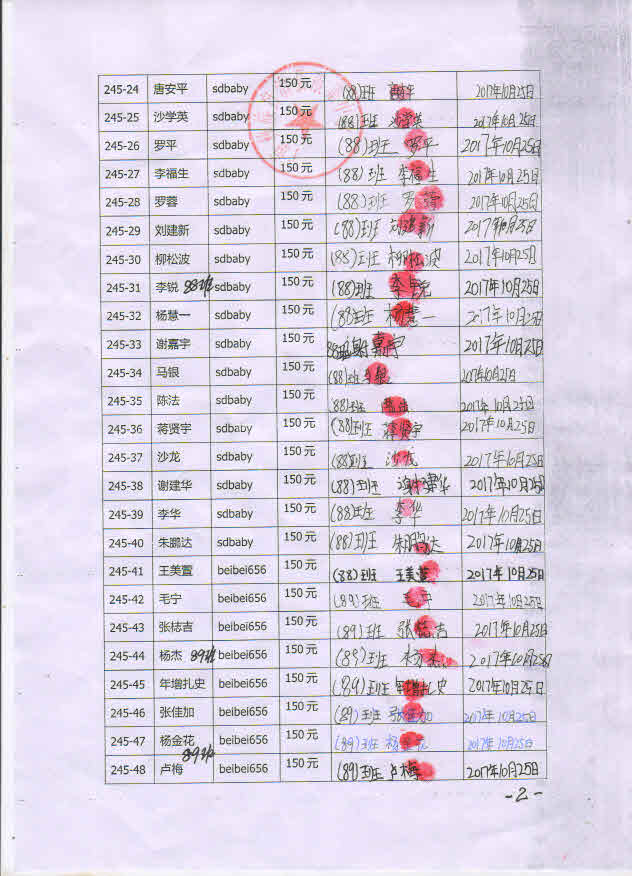 245-24 唐安平 sdbaby 150元 (88)班 2017年10月25日
245-25 沙学英 sdbaby 150元 (88)班 沙学英 2017年10月25日
245-26 罗平 sdbaby 150元 (88)班 罗平 2017年10月25日
245-27 李福生 sdbaby 150元 (88)班 李福生 2017年10月25日
245-28 罗蓉 sdbaby 150元 (88)班 罗蓉 2017年10月25日
245-29 刘建新 sdbaby 150元 (88)班 刘建新 2017年10月25日
245-30 柳松波 sdbaby 150元 (88)班 柳松波 2017年10月25日
245-31 李锐 88班 sdbaby 150元 (88)班 李锐 2017年10月25日
245-32 杨慧一 sdbaby 150元 (88)班 杨慧一 2017年10月25日
245-33 谢嘉宇 sdbaby 150元 88班 谢嘉宇 2017年10月25日
245-34 马银 sdbaby 150元 (88)班 马银 2017年10月25日
245-35 陈法 sdbaby 150元 (88)班 陈法 2017年10月25日
245-36 蒋贤宇 sdbaby 150元 (88)班 蒋贤宇 2017年10月25日
245-37 沙龙 sdbaby 150元 (88)班 沙龙 2017年10月25日
245-38 谢建华 sdbaby 150元 (88)班 谢建华 2017年10月25日
245-39 李华 sdbaby 150元 (88)班 李华 2017年10月25日
245-40 朱鹏达 sdbaby 150元 (88)班 朱鹏达 2017年10月25日
245-41 王美萱 beibei656 150元 (88)班 王美萱 2017年10月25日
245-42 毛宁 beibei656 150元 (89)班 毛宁 2017年10月25日
245-43 张梽吉 beibei656 150元 (89)班 张梽吉 2017年10月25日
245-44 杨杰 89班 beibei656 150元 (88)班 杨杰 2017年10月25日
245-45 年增扎史 beibei656 150元 (89)班 年增扎史 2017年10月25日
245-46 张佳加 beibei656 150元 (89)班 张佳加 2017年10月25日
245-47 杨金花 beibei656 150元 (89)班 杨金花 2017年10月25日
89班
245-48 卢梅 beibei656 150元 (89)班 卢梅 2017年10月25日
-2-